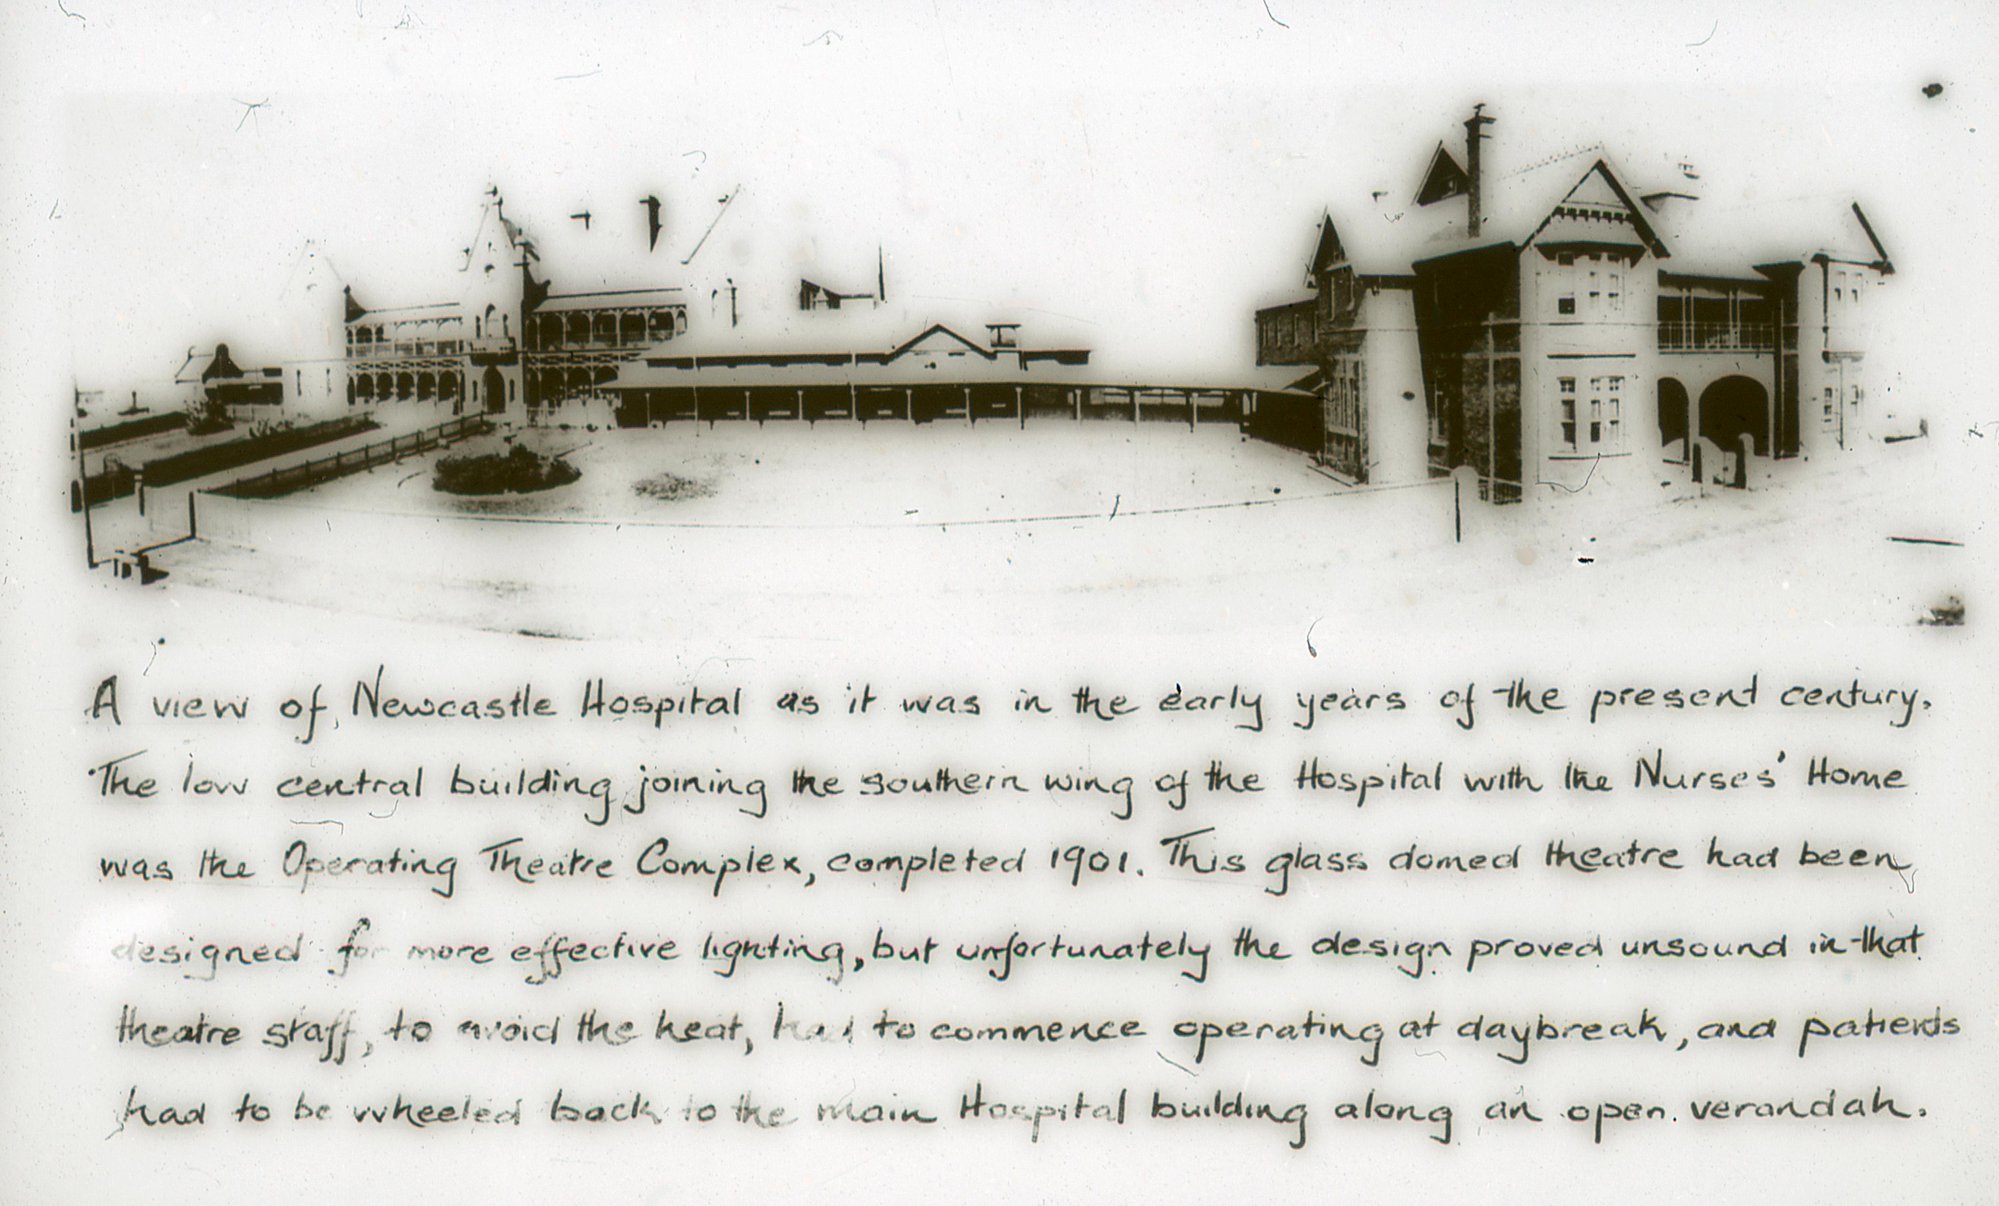 A view of Newcastle Hospital as it was in the early years of the present century.
The low central building joining the southern wing of the Hospital with the Nurses' Home
was the Operating Theatre Complex, completed 1901. This glass domed theatre had been
designed for more effective lighting, but unfortunately the design proved unsound in that
theatre staff, to avoid the heat, had to commence operating at daybreak, and patients
had to be wheeled back to the main Hospital building along an open verandah.